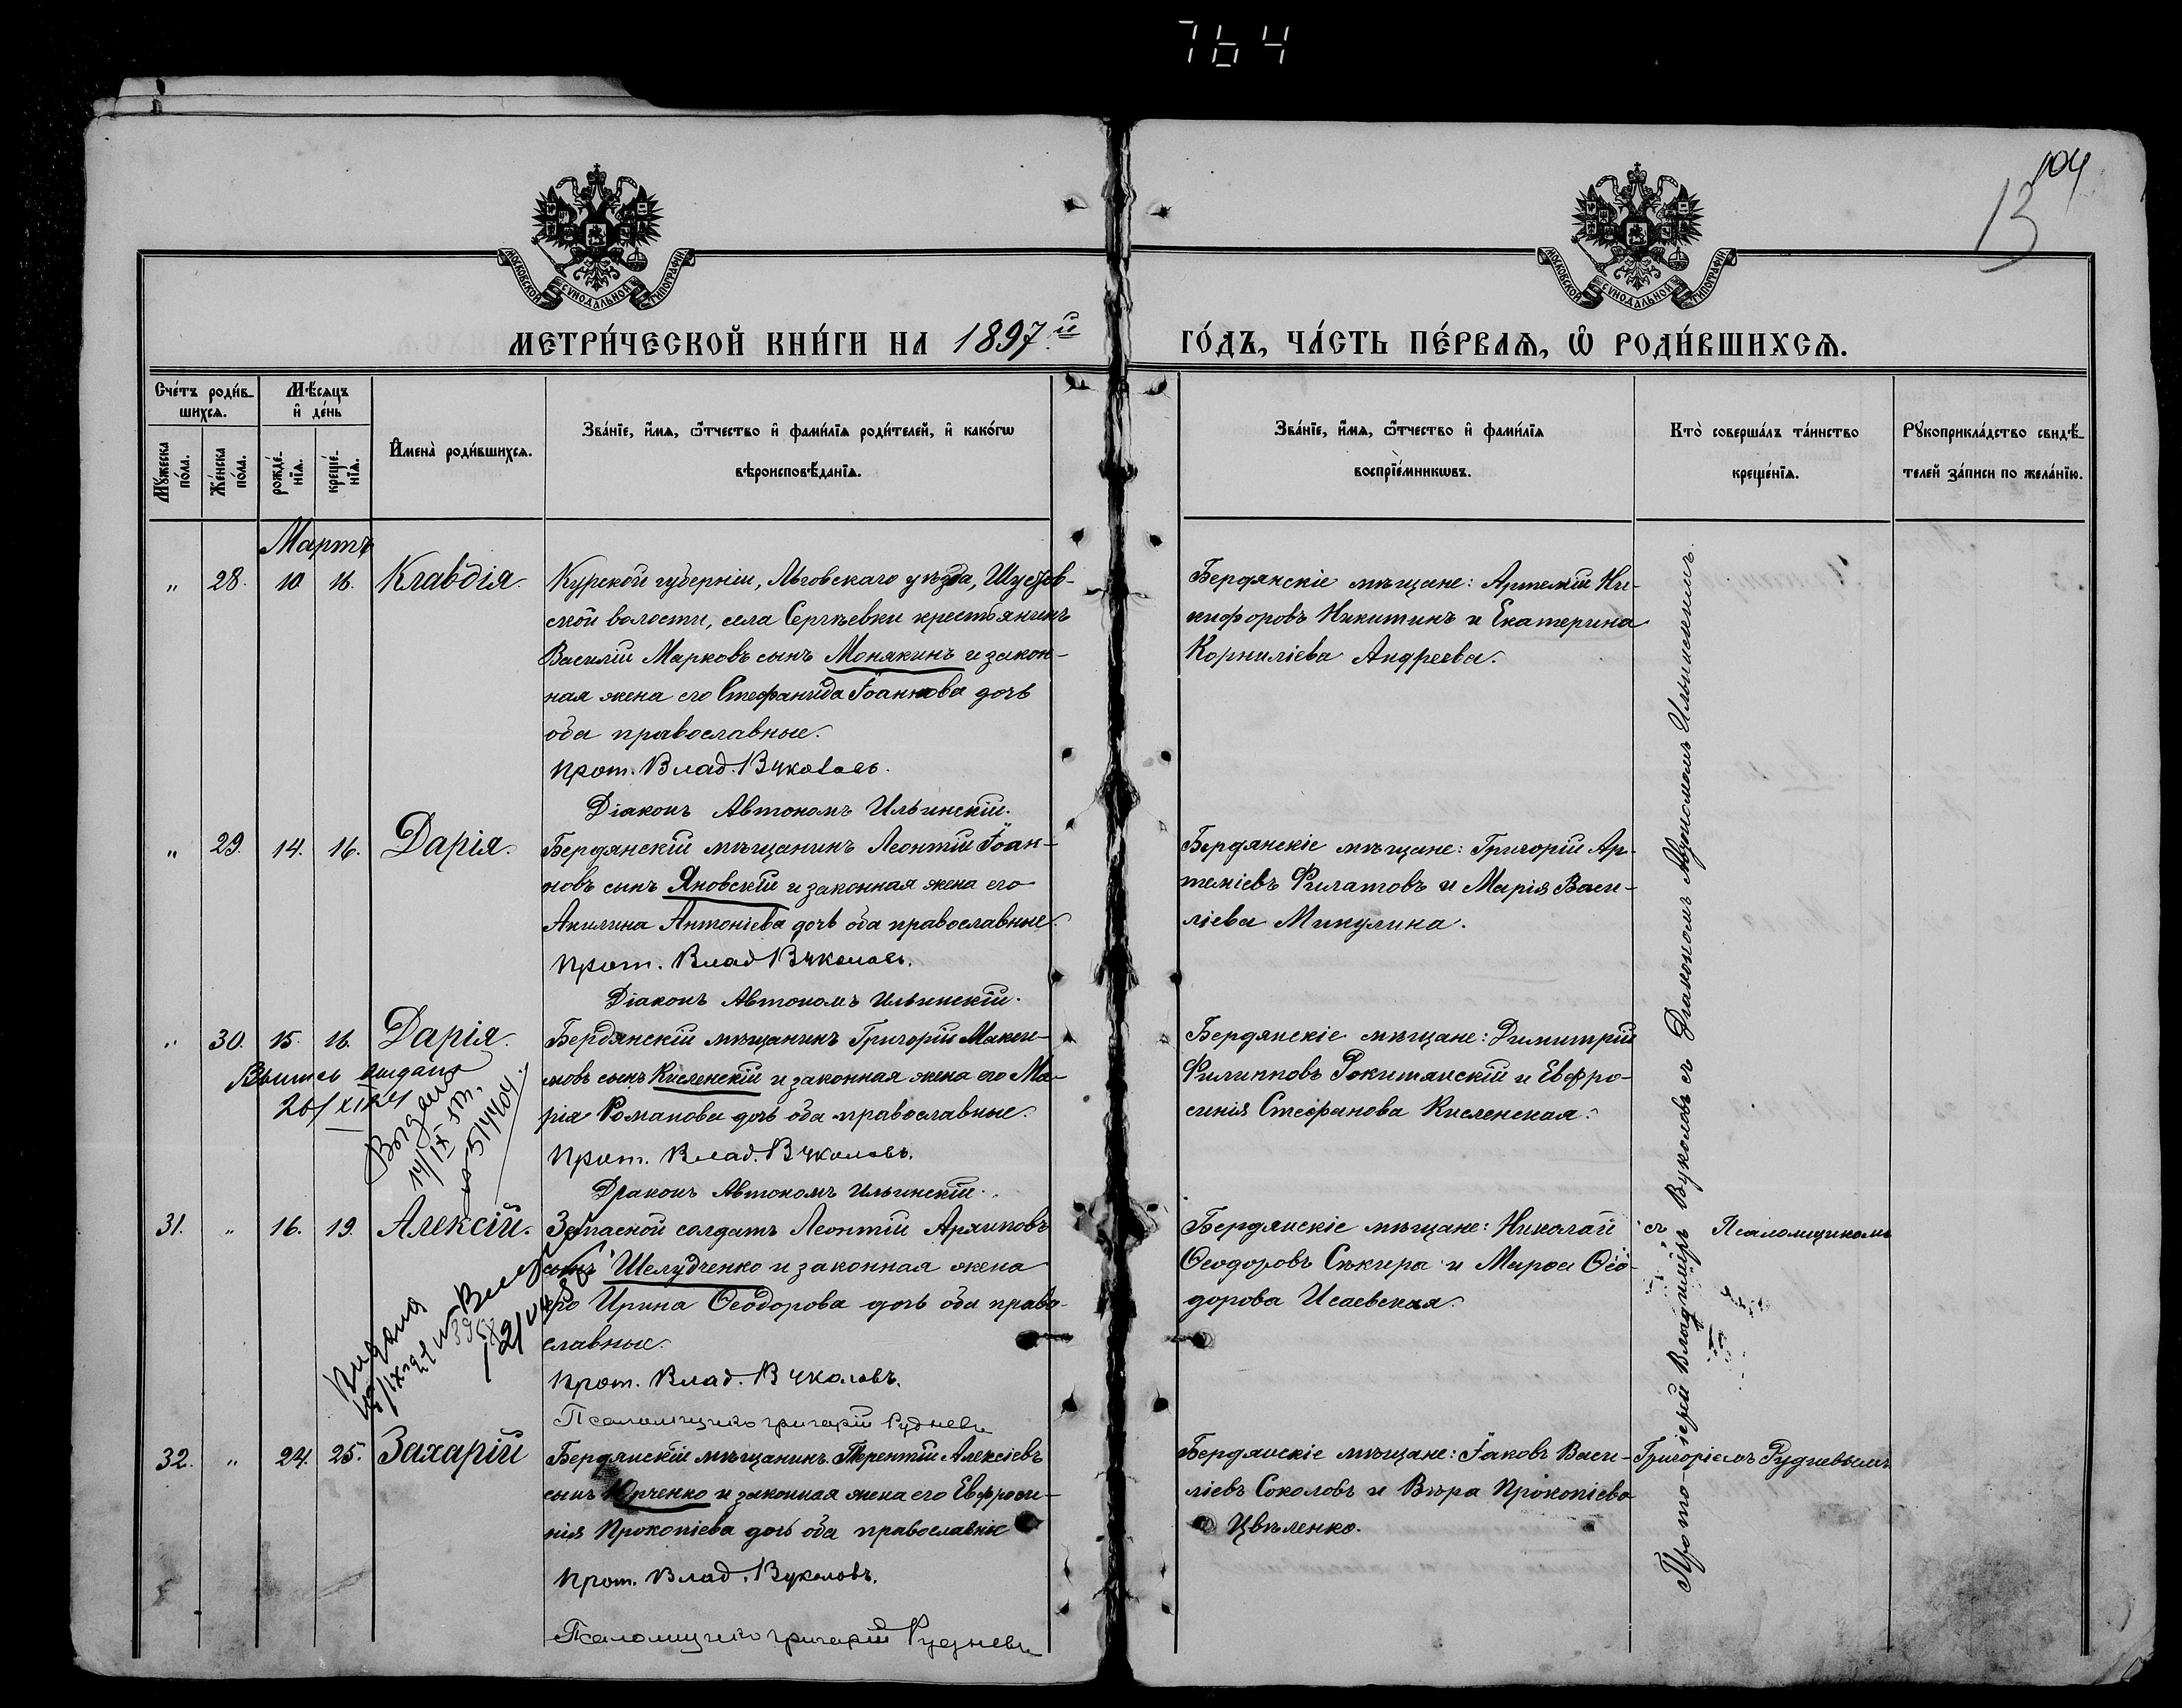 764
104
13
МОСКОВСКОЙ СѴНОДАЛЬНОЙ ТИПОГРАФІИ
МОСКОВСКОЙ СѴНОДАЛЬНОЙ ТИПОГРАФІИ
МЕТРИ́ЧЕСКОЙ КНИ́ГИ НА 1897й
ГО́ДЪ, ЧА́СТЬ ПЕ́РВАѦ, Ѡ҆ РОДИ́ВШИХСѦ.
Счетъ роди́в-
шихсѧ.
Мꙋжеска по́ла.
Же́нска по́ла.
Мѣ́сѧцъ
и҆ де́нь
рожде́-
нїѧ.
креще́-
нїѧ.
И҆мена̀ роди́вшихсѧ.
Зва́нїе, и҆́мѧ, ѻ҆́тчество и҆ фами́лїѧ роди́телей, и҆ како́гѡ
вѣроисповѣ́данїѧ.
Зва́нїе, и҆́мѧ, ѻ҆́тчество и҆ фами́лїѧ
воспрїе́мникѡвъ.
Кто̀ соверша́лъ та́инство
креще́нїѧ.
Рꙋкоприкла́дство свидѣ́-
телей за́писи по жела́нїю.
Мартъ
" 28. 10 16. Клавдія.
Курской губерніи, Льговскаго уѣзда,
ской волости, села Сергѣевки крестьянинъ
Василій Марковъ сынъ Монякинъ и закон-
ная жена его Стефанида Іоаннова дочь
оба православные.
Прот. Влад. Вуколовъ.
Діаконъ Автономъ Ильинскій.
Бердянскіе мѣщане: Артемій Ни-
кифоровъ Никитинъ и Екатерина
Корниліева Андреева.
" 29. 14. 16. Дарія.
Бердянскій мѣщанинъ Леонтій Іоан-
новъ сынъ Яновскій и законная жена его
Акилина Антоніева дочь оба православные.
Прот. Влад Вуколовъ.
Діаконъ Автономъ Ильинскій.
Бердянскіе мѣщане: Григорій Ар-
теміевъ Филатовъ и Марія Васи-
ліева Микулина.
" 30. 15. 16. Дарія.
Бердянскій мѣщанинъ Григорій Макси-
мовъ сынъ Кисленскій и законная жена его Ма-
рія Романова дочь оба православные.
Прот. Влад. Вуколовъ.
Діаконъ Автономъ Ильинскій.
Бердянскіе мѣщане: Димитрій
Филипповъ Рокитянскій и Евфро-
синія Стефанова Кисленская.
Выпись выдана
Выдано
14/IX
31. " 16. 19. Алексій.
Запасной солдатъ Леонтій Архиповъ
сынъ Шелудченко и законная жена
его Ирина Ѳеодорова дочь оба право-
славные.
Прот. Влад. Вуколовъ.
Псаломщикъ Григорій Рудневъ
Бердянскіе мѣщане: Николай
Ѳеодоровъ Сѣкира и Марѳа Ѳео-
дорова Исаевская.
съ Псаломщикомъ
32. " 24. 25. Захарій
Бердянскій мѣщанинъ Терентій Алексіевъ
сынъ Юрченко и законная жена его Евфроси-
нія Прокопіева дочь оба православные
Прот. Влад. Вуколовъ.
Псаломщикъ Григорій Рудневъ
Бердянскіе мѣщане: Іаковъ Васи-
ліевъ Соколовъ и Вѣра Прокопіева
Цвѣленко.
Григоріемъ Рудневымъ
Протоіерей Владиміръ Вуколовъ съ Діакономъ Автономомъ Ильинскимъ.